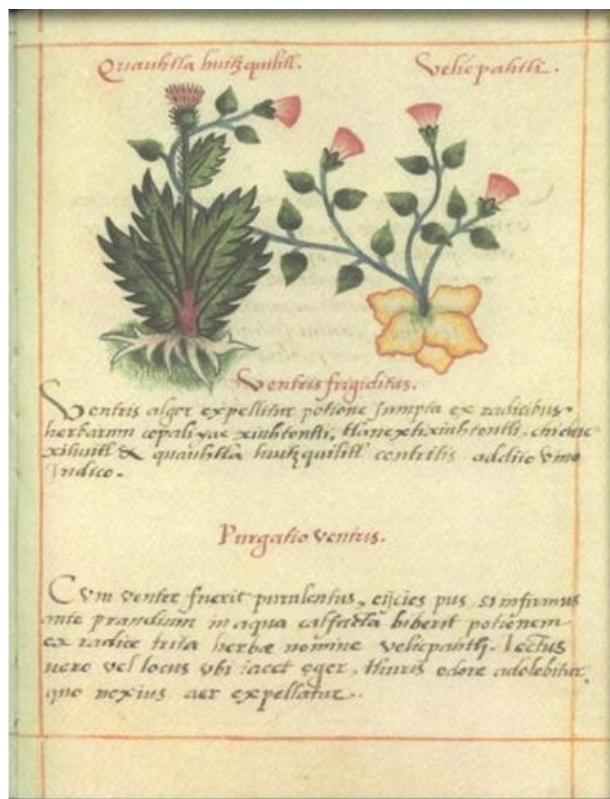 Quauhtla huitzquilitl. Velicpahtli.
Ventris frigiditas.
Ventris algor expellitur potione sumpta ex radicibus
herbarum copaliyac xiuhtontli, tlanextixiuhtontli,
xihuitl & quauhtla huitzquilitl contritis addito vino
Indico.
Purgatio ventris.
Cum venter fuerit purulentus, eijcies pus si infirmus
ante prandium in aqua calfacta biberit potionem
ex radice trita herbæ nomine velicpahtli. Lectus
uero vel locus ubi iacet eger, thuris odore adolebitur,
quo noxius aer expellatur.